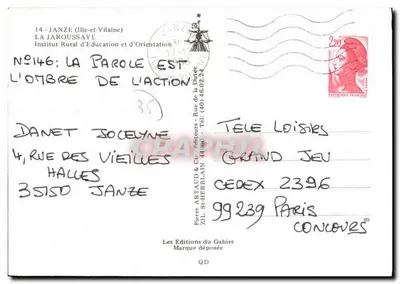 14 - JANZE (Ille-et-Vilaine)
LA JAROUSSAYE
Institut Rural d'Education et d'Orientation
N°146: LA PAROLE EST
L'OMBRE DE L'ACTION
35
DANET JOCELYNE
4, RUE DES VIEILLES
HALLES
35150 JANZE
Pierre ARTAUD & Cie Editeurs - Rue de la Dutée
ZIL St-HERBLAIN 44 - Tél. (40) 46.02.24
2,20
TELE LOISIRS
GRAND JEU
CEDEX 2396
99239 PARIS
CONCOURS
Les Editions du Gabier
Marque déposée
QD